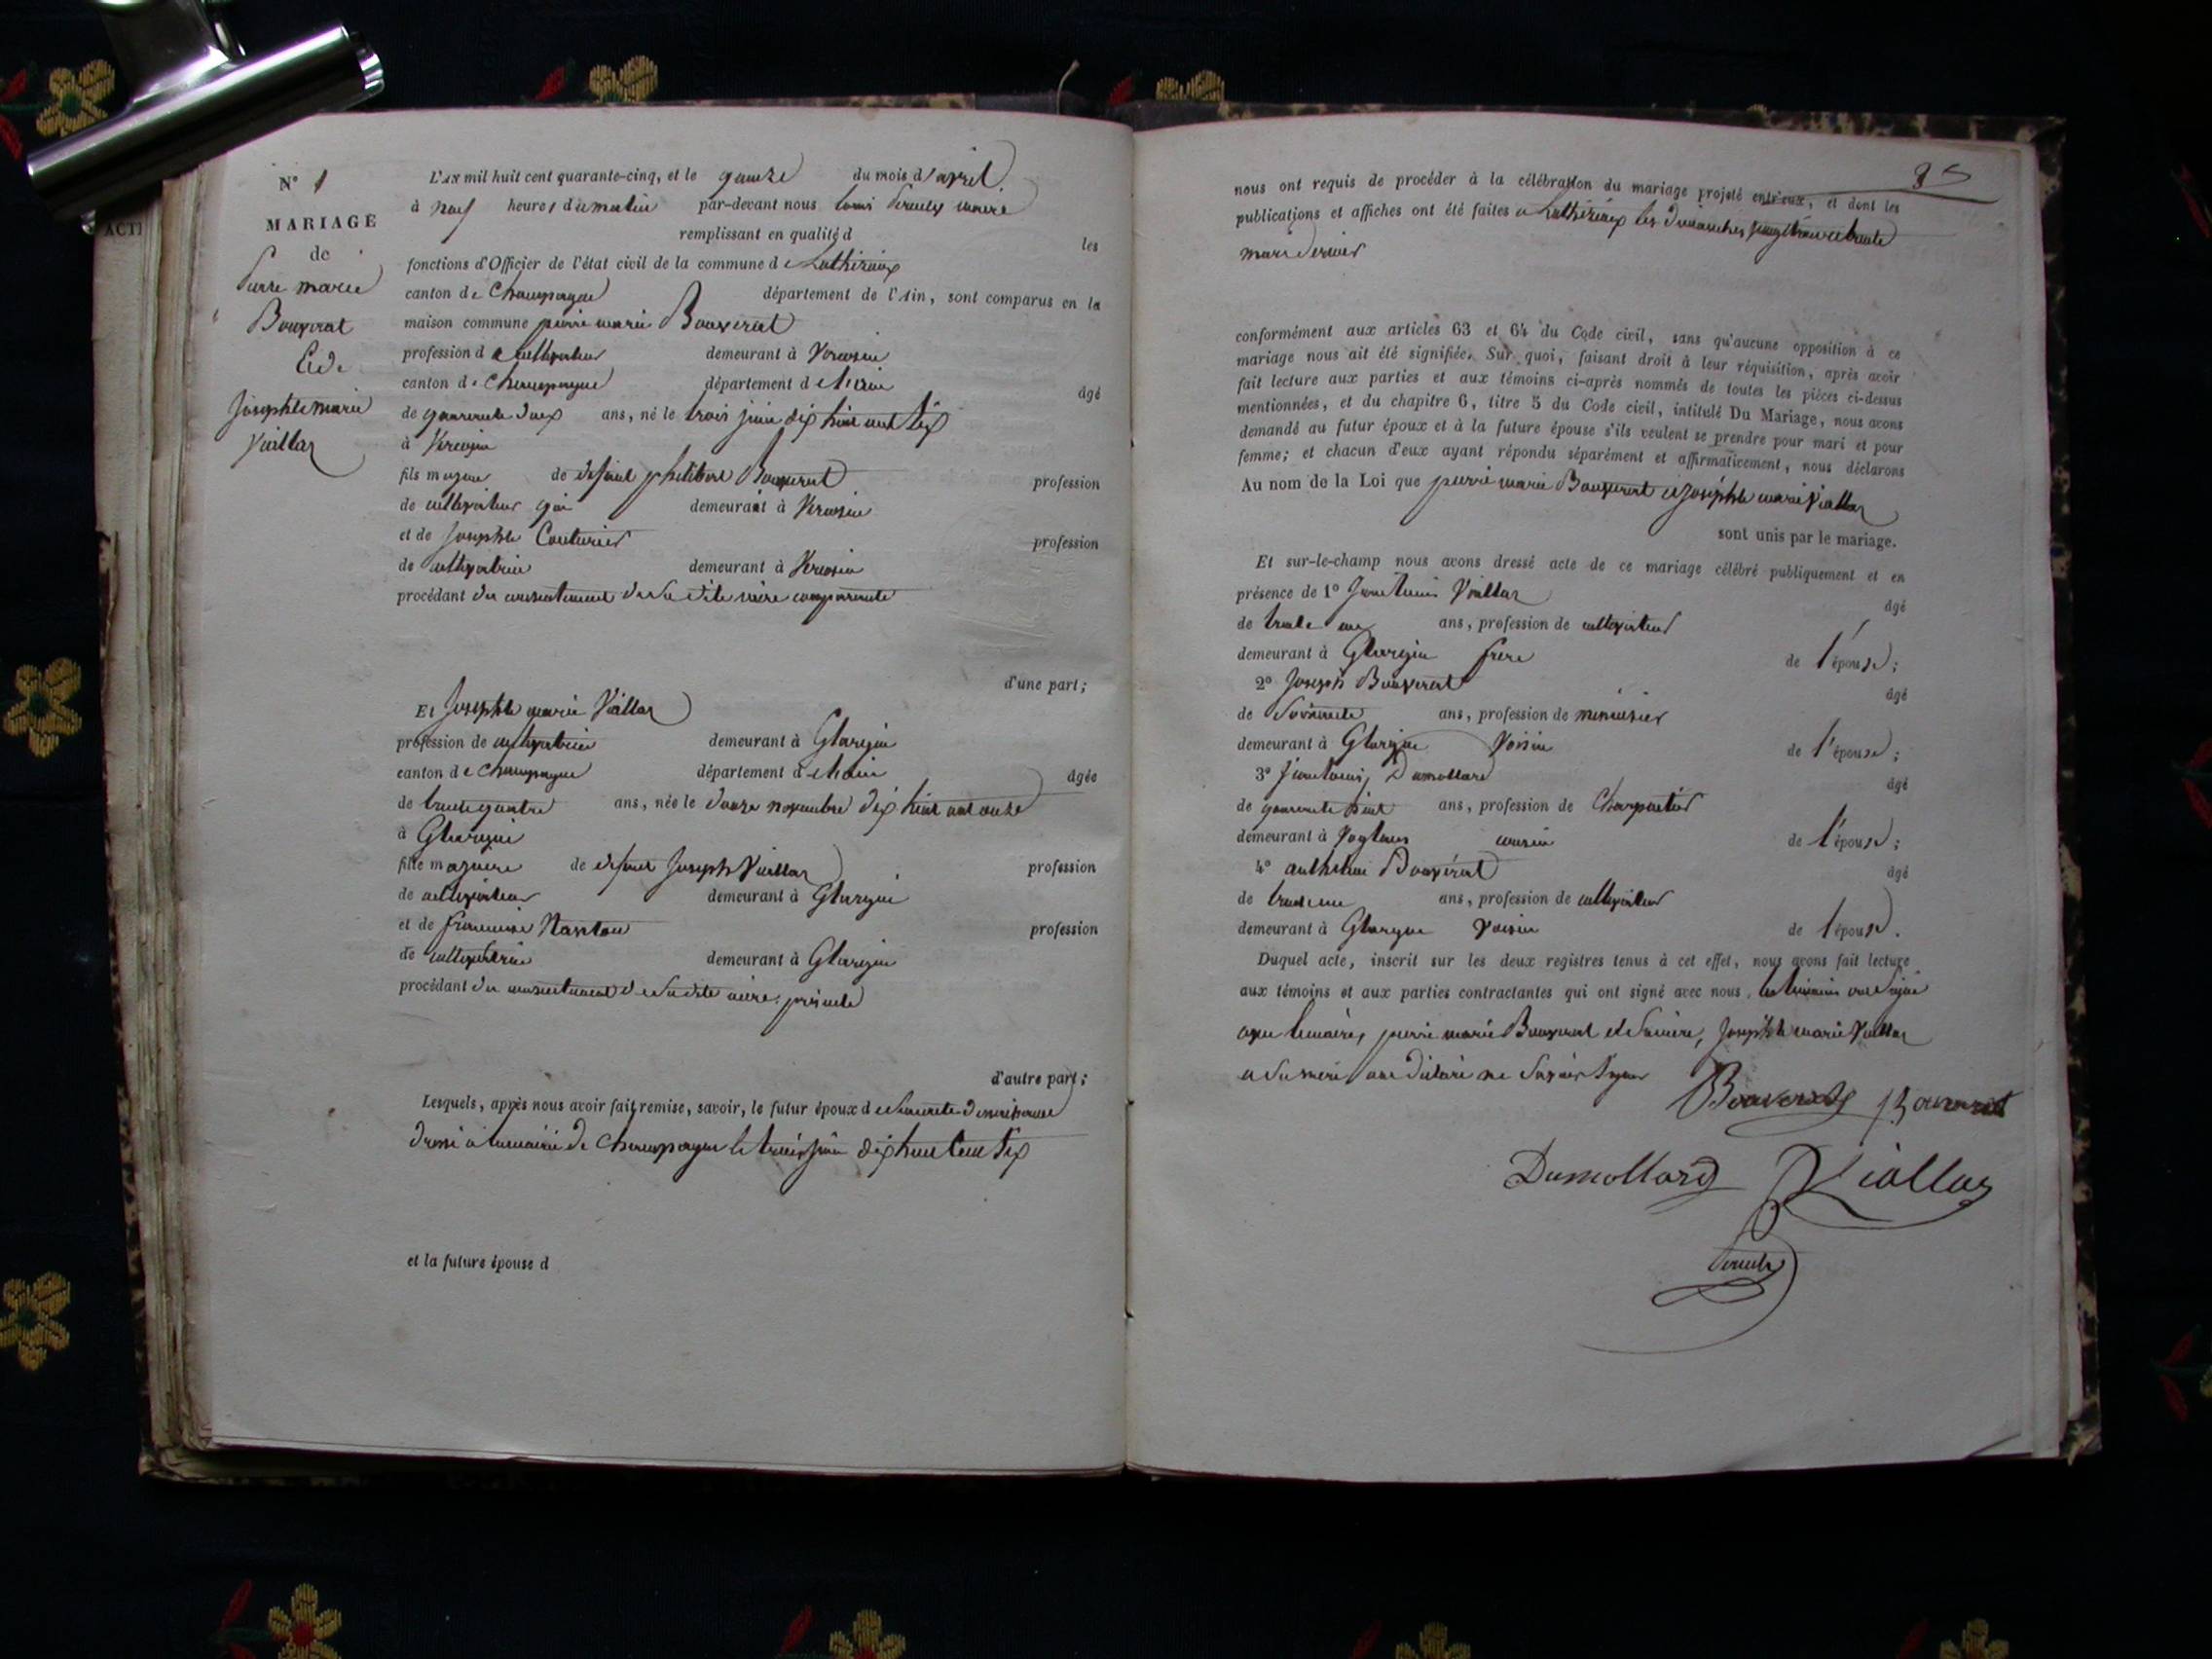 ACTE
N° 1
MARIAGE
de
Pierre marie
Bouverat
Et de
Josephte marie
Viallaz
L'AN mil huit cent quarante-cinq, et le quinze du mois d'avril
à neuf heures du matin par-devant nous Louis maire
remplissant en qualité d les
fonctions d'Officier de l'état civil de la commune de Luthézieu
canton de Champagne département de l'Ain, sont comparus en la
maison commune pierre marie Bouverat
profession de cultivateur demeurant à Vercosin
canton de Champagne département de l'ain âgé
de quarante deux ans, né le trois juin dix huit cent
à Vercosin
fils majeur de defunt philibert Bouverat profession
de cultivateur demeurant à Vercosin
et de Josephte Couturier profession
de cultivatrice demeurant à Vercosin
procédant du consentement de sa dite mère comparante
d'une part;
Et Josephte marie Viallaz
profession de cultivatrice demeurant à Glargin
canton de Champagne département de l'ain âgée
de trente quatre ans, née le douze novembre dix huit cent onze
à Glargin
fille majeure de defunt Joseph Viallaz profession
de cultivateur demeurant à Glargin
et de francoise profession
de cultivatrice demeurant à Glargin
procédant du consentement de sa dite mère présente
d'autre part;
Lesquels, après nous avoir fait remise, savoir, le futur époux de
à la mairie de Champagne le trois juin dix huit cent
et la future épouse d
nous ont requis de procéder à la célébration du mariage projeté entr'eux, et dont les
publications et affiches ont été faites à Luthézieu les dimanches vingt trois et trente
mars dernier
conformément aux articles 63 et 64 du Code civil, sans qu'aucune opposition à ce
mariage nous ait été signifiée. Sur quoi, faisant droit à leur réquisition, après avoir
fait lecture aux parties et aux témoins ci-après nommés de toutes les pièces ci-dessus
mentionnées, et du chapitre 6, titre 5 du Code civil, intitulé Du Mariage, nous avons
demandé au futur époux et à la future épouse s'ils veulent se prendre pour mari et pour
femme; et chacun d'eux ayant répondu séparément et affirmativement, nous déclarons
Au nom de la Loi que pierre marie Bouverat et Josephte marie Viallaz
sont unis par le mariage.
Et sur-le-champ nous avons dressé acte de ce mariage célébré publiquement et en
présence de 1° Viallaz âgé
de trente ans, profession de cultivateur
demeurant à Glargin frere de l'épouse;
2° Joseph Bouverat âgé
de soixante ans, profession de menuisier
demeurant à Glargin voisin de l'épouse;
3° Dumollard âgé
de quarante ans, profession de Charpentier
demeurant à cousin de l'épouse;
4° anthelme Bouvérat âgé
de ans, profession de cultivateur
demeurant à Glargin voisin de l'épouse.
Duquel acte, inscrit sur les deux registres tenus à cet effet, nous avons fait lecture
aux témoins et aux parties contractantes qui ont signé avec nous, les temoins ont signé
avec le maire, pierre marie Bouverat et sa mère, Josephte marie Viallaz
et sa mere ont déclaré ne savoir signer
Bouverat Bouverat
Dumollard Viallaz